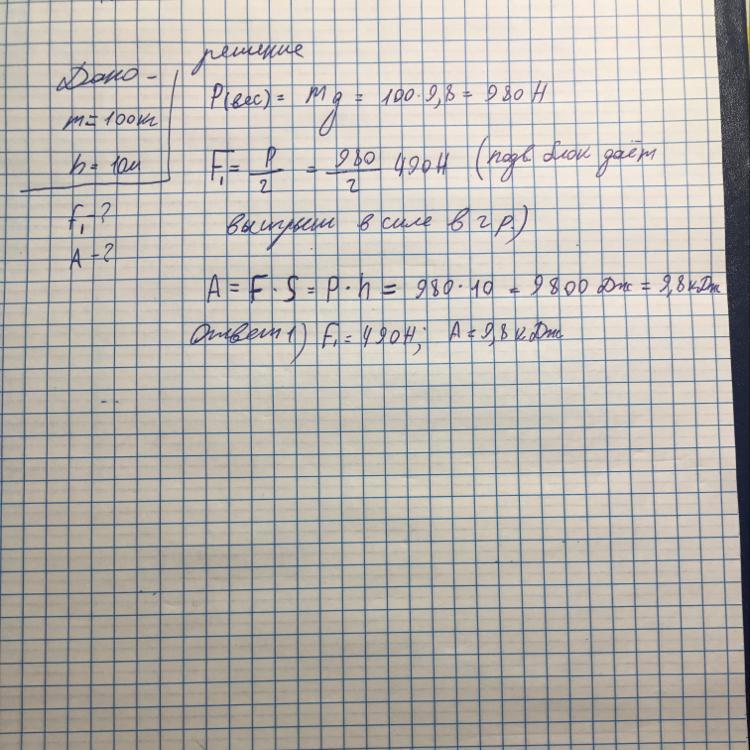 решение
Дано -
m = 100кг
h = 10м
F₁ - ?
A - ?
P(вес) = mg = 100·9,8 = 980 Н
F₁ = P/2 = 980/2 490Н (подв. блок даёт
выигрыш в силе в 2 р.)
A = F·S = P·h = 980·10 = 9800 Дж = 9,8кДж
Ответ 1) F₁ = 490Н; A = 9,8кДж